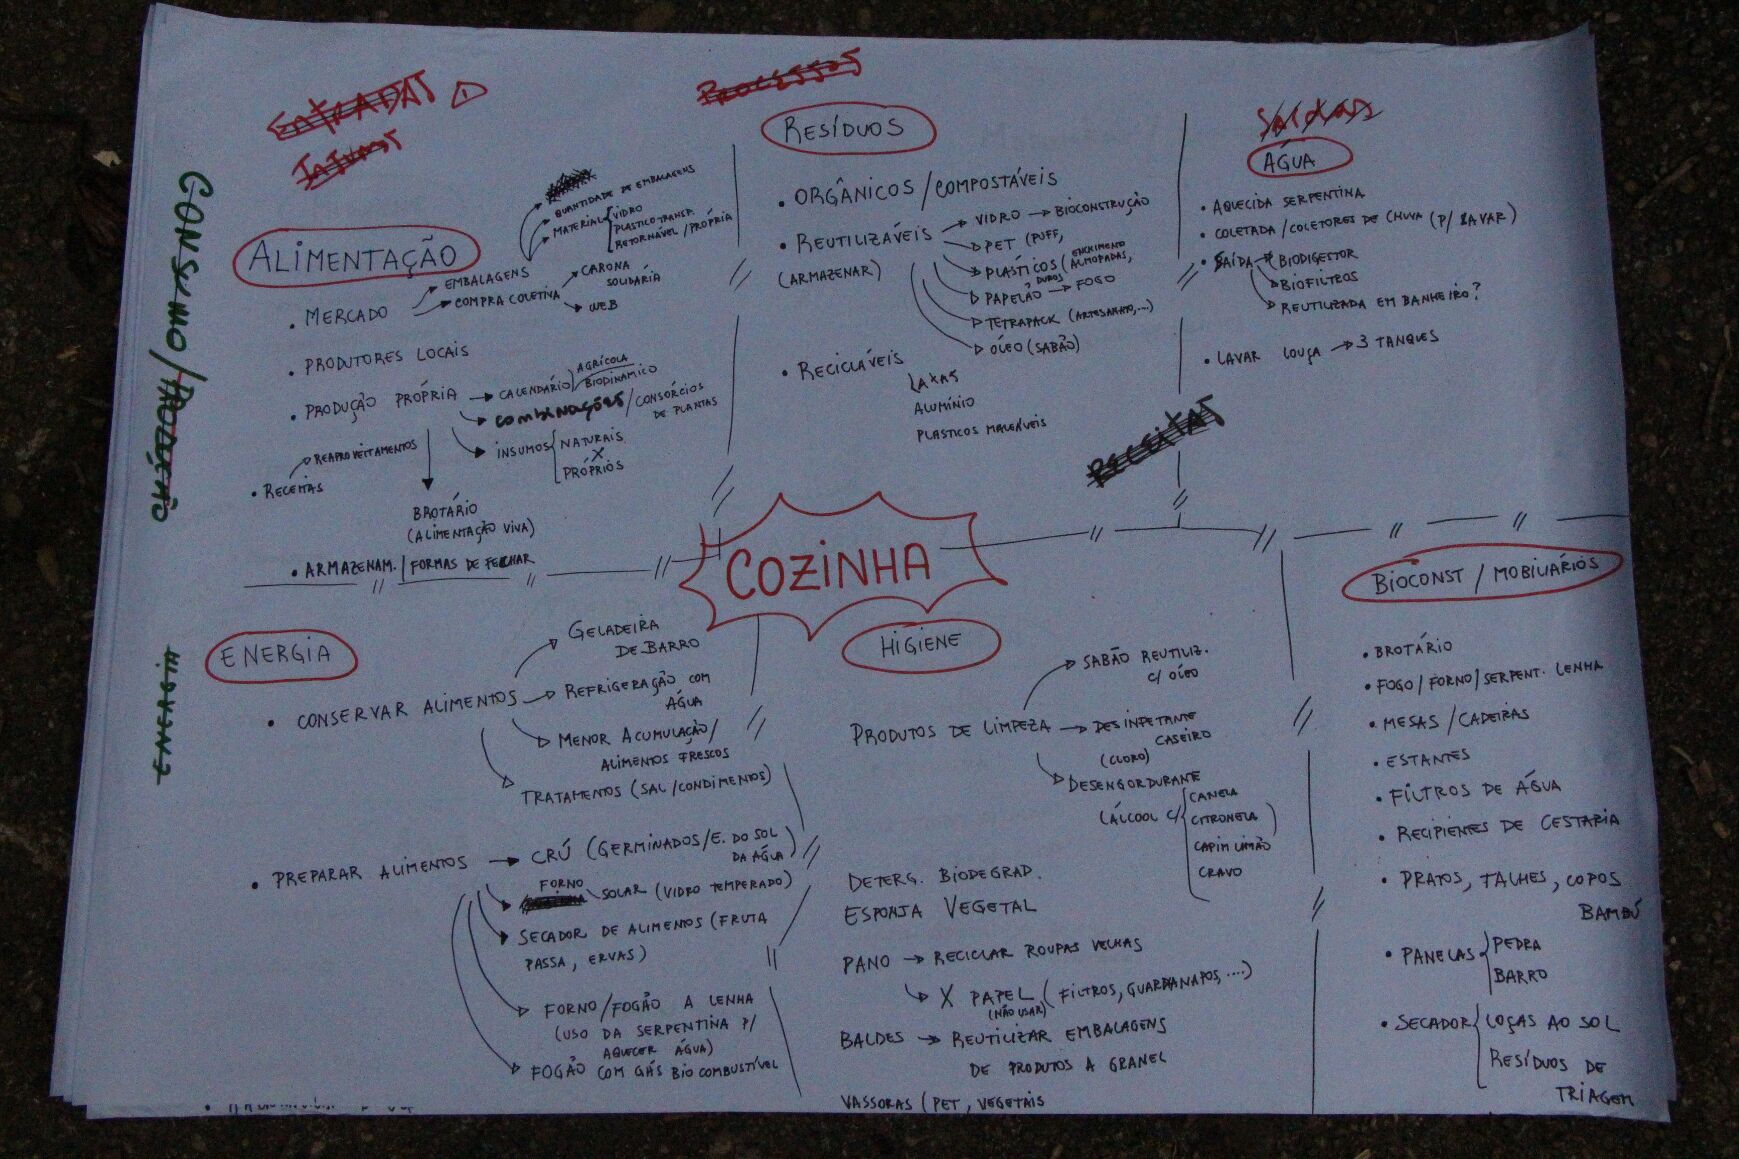 ENTRADAS
PROCESSOS
SAÍDAS
CONSUMO/PRODUÇÃO
ALIMENTAÇÃO
QUANTIDADE DE EMBALAGENS
MATERIAL { VIDRO
PLASTICO TRANSP.
RETORNÁVEL / PRÓPRIA
• MERCADO → EMBALAGENS
→ COMPRA COLETIVA → CARONA
SOLIDÁRIA
→ WEB
• PRODUTORES LOCAIS
• PRODUÇÃO PRÓPRIA → CALENDÁRIO AGRÍCOLA
BIODINAMICO
→ COMBINAÇÕES / CONSÓRCIOS
DE PLANTAS
→ INSUMOS { NATURAIS
X
PRÓPRIOS
REAPROVEITAMENTOS
• RECEITAS
BROTÁRIO
(ALIMENTAÇÃO VIVA)
• ARMAZENAM. / FORMAS DE FECHAR
RESÍDUOS
• ORGÂNICOS / COMPOSTÁVEIS
• REUTILIZÁVEIS → VIDRO → BIOCONSTRUÇÃO
(ARMAZENAR) → PET (PUFF,
→ PLÁSTICOS (ENCHIMENTO
DUROS ALMOFADAS,
→ PAPELÃO → FOGO
→ TETRAPACK (ARTESANATO,....)
→ ÓLEO (SABÃO)
• RECICLÁVEIS
LATAS
ALUMÍNIO
PLASTICOS MALEÁVEIS
ÁGUA
• AQUECIDA SERPENTINA
• COLETADA / COLETORES DE CHUVA (P/ LAVAR)
• SAÍDA → BIODIGESTOR
→ BIOFILTROS
→ REUTILIZADA EM BANHEIRO?
• LAVAR LOUÇA → 3 TANQUES
RECEITAS
COZINHA
ENERGIA
• CONSERVAR ALIMENTOS → GELADEIRA
DE BARRO
→ REFRIGERAÇÃO COM
ÁGUA
→ MENOR ACUMULAÇÃO/
ALIMENTOS FRESCOS
→ TRATAMENTOS (SAL / CONDIMENTOS)
• PREPARAR ALIMENTOS → CRÚ (GERMINADOS/E. DO SOL
DA ÁGUA)
→ FORNO SOLAR (VIDRO TEMPERADO)
→ SECADOR DE ALIMENTOS (FRUTA
PASSA, ERVAS)
→ FORNO/FOGÃO A LENHA
(USO DA SERPENTINA P/
AQUECER ÁGUA)
→ FOGÃO COM GÁS BIO COMBUSTÍVEL
HIGIENE
PRODUTOS DE LIMPEZA → SABÃO REUTILIZ.
C/ ÓLEO
→ DESINFETANTE
CASEIRO
(CLORO)
→ DESENGORDURANTE
(ÁLCOOL C/ { CANELA
CITRONELA )
CAPIM LIMÃO
CRAVO
DETERG. BIODEGRAD.
ESPONJA VEGETAL
PANO → RECICLAR ROUPAS VELHAS
→ X PAPEL (FILTROS, GUARDANAPOS, ....)
(NÃO USAR)
BALDES → REUTILIZAR EMBALAGENS
DE PRODUTOS A GRANEL
VASSORAS (PET, VEGETAIS
BIOCONST / MOBILIÁRIOS
• BROTÁRIO
• FOGO / FORNO / SERPENT. LENHA
• MESAS / CADEIRAS
• ESTANTES
• FILTROS DE ÁGUA
• RECIPIENTES DE CESTARIA
• PRATOS, TALHES, COPOS
BAMBÚ
• PANELAS { PEDRA
BARRO
• SECADOR { LOÇAS AO SOL
RESÍDUOS DE
TRIAGEM